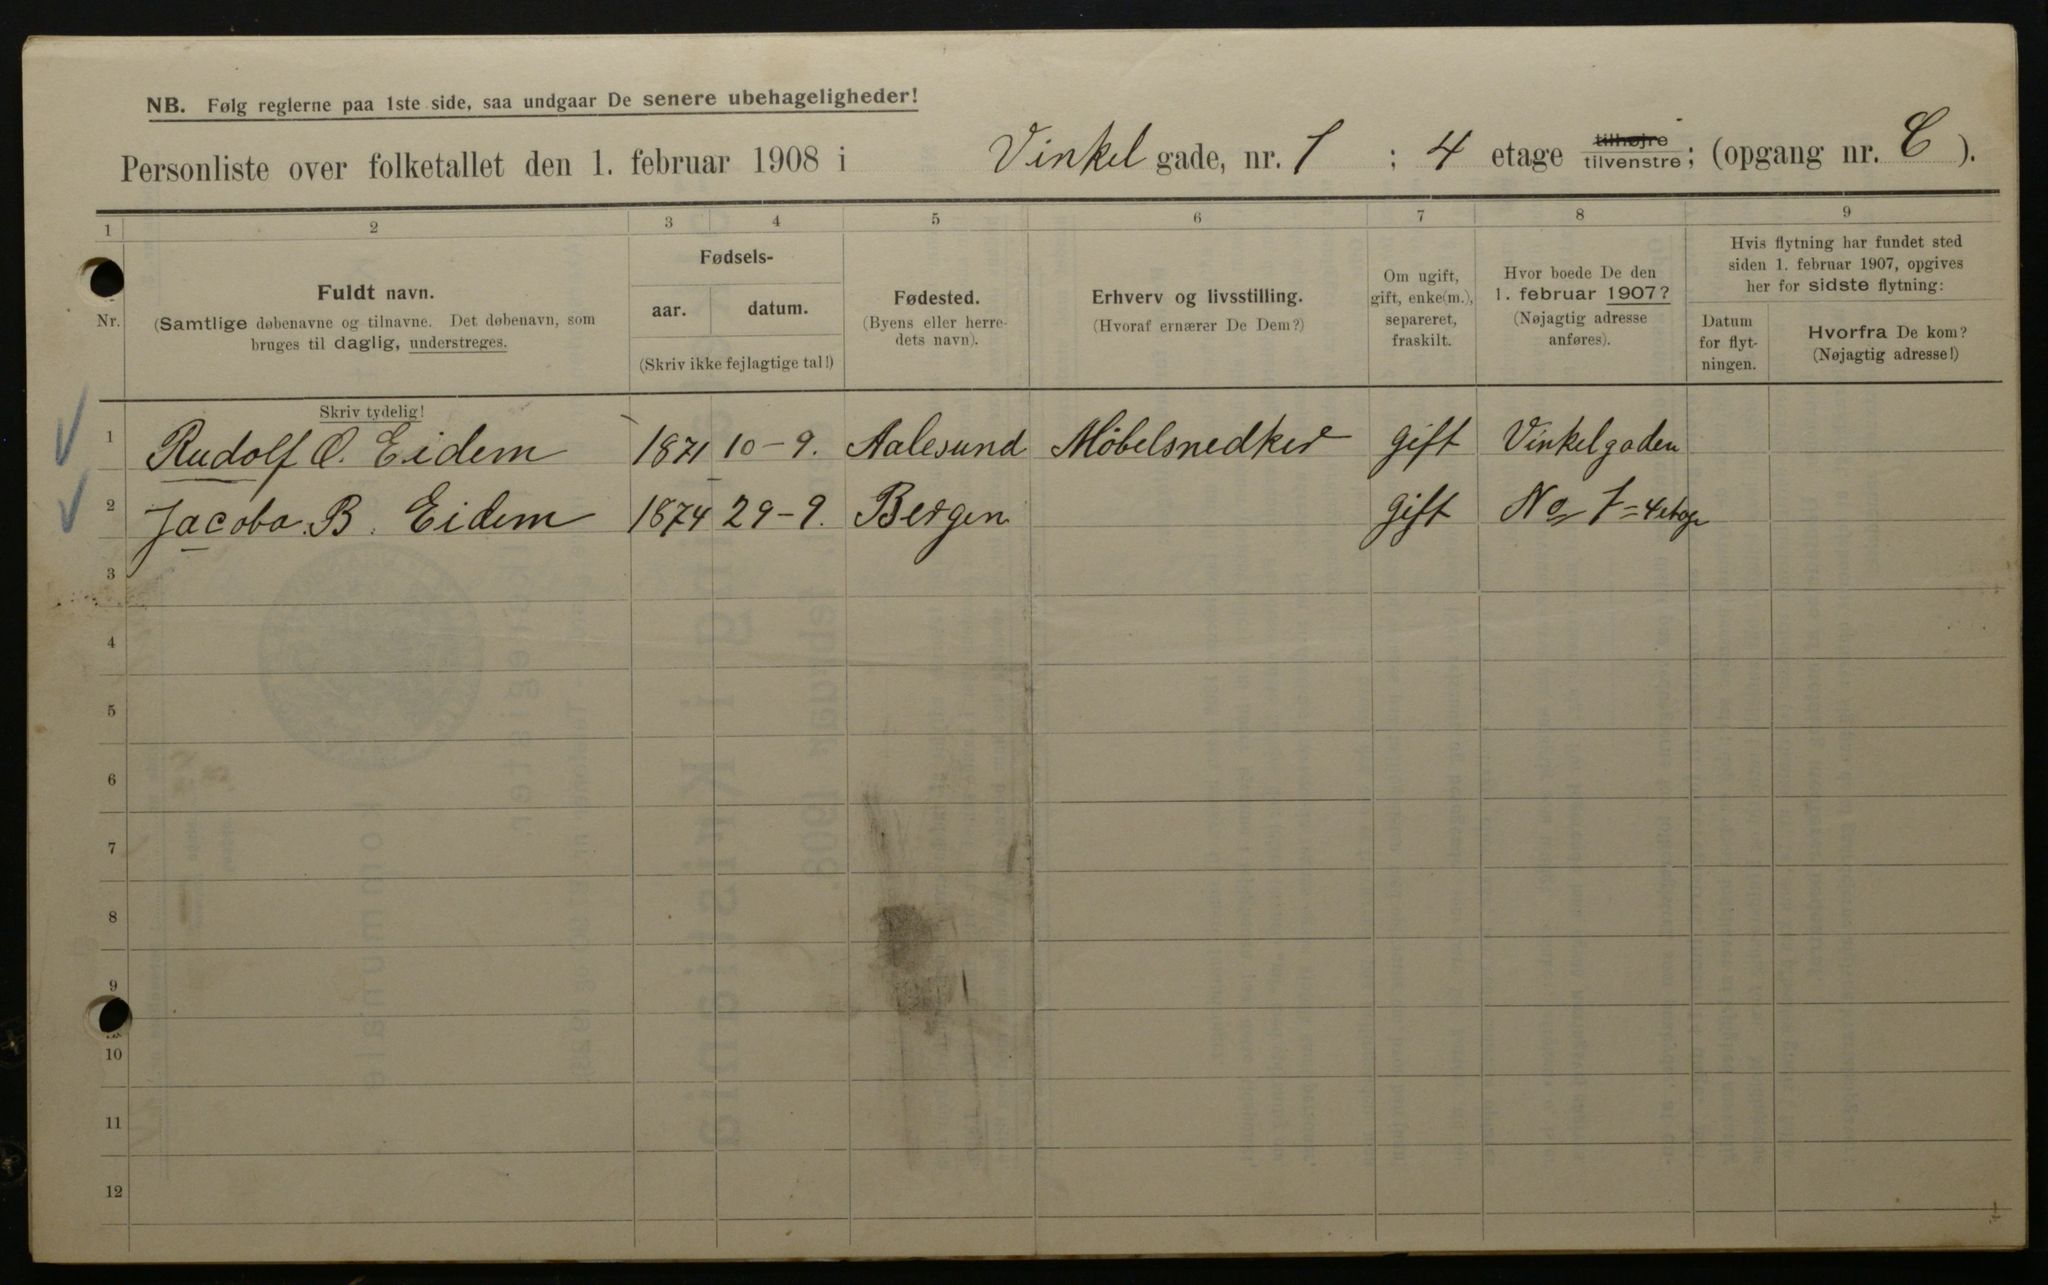 NB. Følg reglerne paa 1ste side, saa undgaar De senere ubehageligheder!
Personliste over folketallet den 1. februar 1908 i Vinkel gade, nr. 1 ; 4 etage tilhøjre tilvenstre; (opgang nr. C ).
1 2 3 4 5 6 7 8 9
Nr.
Fuldt navn.
(Samtlige døbenavne og tilnavne. Det døbenavn, som
bruges til daglig, understreges.
Skriv tydelig!
Fødsels-
aar. datum.
(Skriv ikke fejlagtige tal!)
Fødested.
(Byens eller herre-
dets navn).
Erhverv og livsstilling.
(Hvoraf ernærer De Dem?)
Om ugift,
gift, enke(m.),
separeret,
fraskilt.
Hvor boede De den
1. februar 1907?
(Nøjagtig adresse
anføres).
Hvis flytning har fundet sted
siden 1. februar 1907, opgives
her for sidste flytning:
Datum
for flyt-
ningen.
Hvorfra De kom?
(Nøjagtig adresse!)
1 Rudolf O. Eidem 1871 10-9. Aalesund Möbelsnedker gift Vinkelgaden
2 Jacoba B. Eidem 1874 29-9. Bergen gift No 1 = 4 etage
3
4
5
6
7
8
9
10
11
12